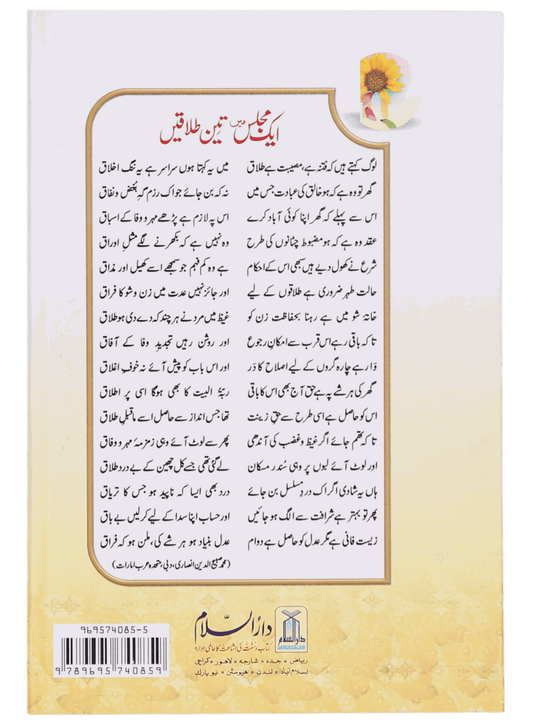 ایک مجلس میں تین طلاقیں
لوگ کہتے ہیں کہ فتنہ ہے، مصیبت ہے طلاق میں یہ کہتا ہوں سراسر ہے یہ ننگ اخلاق
گھر تو وہ ہے کہ ہو خالق کی عبادت جس میں نہ کہ بن جائے جو اک رزم گہِ بغض و نفاق
اس سے پہلے کہ گھر اپنا کوئی آباد کرے اس پہ لازم ہے پڑھے مہر و وفا کے اسباق
عقد وہ ہے کہ ہو مضبوط چٹانوں کی طرح وہ نہیں ہے کہ بکھرنے لگے مثلِ اوراق
شرع نے کھول دیے ہیں سبھی اس کے احکام ہے وہ کم فہم جو سمجھے اسے کھیل اور مذاق
حالت طہر ضروری ہے طلاقوں کے لیے اور جائز نہیں عدت میں زن و شو کا فراق
خانۂ شو میں ہے رہنا بحفاظت زن کو غیظ میں مرد نے ہر چند کہ دے دی ہو طلاق
تا کہ باقی رہے اس قرب سے امکانِ رجوع اور روشن رہیں تجدیدِ وفا کے آفاق
وَا رہے چارہ گروں کے لیے اصلاح کا دَر اور اس باب کو پیش آئے نہ خوفِ اغلاق
گھر کی ہر شے پہ ہے حق آج بھی اس کا باقی ربۃ البیت کا بھی ہوگا اسی پر اطلاق
اس کو حاصل ہے اسی طرح سے حقِ زینت تھا جس انداز سے حاصل اسے ماقبلِ طلاق
تا کہ تھم جائے اگر غیظ و غضب کی آندھی پھر سے لوٹ آئے وہی زمزمۂ مہر و وفاق
اور لوٹ آئے لبوں پر وہی سُندر مسکان لے گئی تھی جسے کل چھین کے بے درد طلاق
ہاں یہ شادی اگر اک دردِ مسلسل بن جائے درد بھی ایسا کہ ناپید ہو جس کا تریاق
پھر تو بہتر ہے شرافت سے الگ ہو جائیں اور حساب اپنا سدا کے لیے کر لیں بے باق
زیست فانی ہے مگر عدل کو حاصل ہے دوام عدل بنیاد ہو ہر شے کی، ملن ہو کہ فراق
انصاری، دبئی، متحدہ عرب امارات)
969574085-5
9789695740859
دارالسلام
کتاب و سنت کی اشاعت کا عالمی ادارہ
ریاض • جدہ • شارجہ • لاہور • کراچی
اسلام آباد • لندن • ہیوسٹن • نیو یارک
دارالسلام
DARUSSALAM